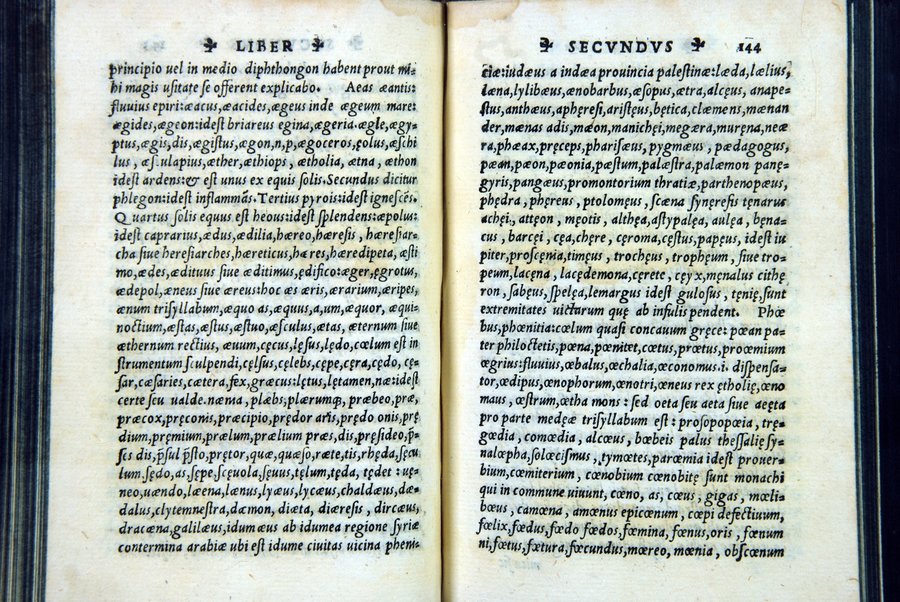 LIBER
principio uel in medio diphthongon habent prout mi-
hi magis usitate se offerent explicabo. Aeas æantis:
fluuius epiri:æacus,æacides,ægeus inde ægeum mare:
ægides,ægeon:idest briareus egina,ægeria.ægle,ægy-
ptus,ægis,dis,ægistus,ægon,n,p,ægoceros,ęolus,æschi
lus, æsculapius,æther,æthiops, ætholia, ætna, æthon
idest ardens:& est unus ex equis solis.Secundus dicitur
phlegon:idest inflammās.Tertius pyrois:idest ignescēs.
Quartus solis equus est heous:idest splendens:æpolus:
idest caprarius,ædus,ædilia,hæreo,hæresis, hæresiar-
cha siue heresiarches,hæreticus,hæres,hæredipeta,æsti
mo,ædes,ædituus siue æditimus,ędifico:æger,ęgrotus,
ædepol,æneus siue æreus:hoc æs æris,ærarium,æripes,
ænum trisyllabum,æquo as,æquus,a,um,æquor, æqui-
noctium,æstas,æstus,æstuo,æsculus,ætas, æternum siue
æthernum rectius, æuum,cęcus,lęsus,lędo,cœlum est in
strumentum sculpendi,cęlsus,cęlebs,cępe,cęra,cędo, cę-
sar,cæsaries,cætera,fex,græcus:lętus,lętamen,næ:idest
certe seu ualde.nænia, plæbs,plærumqꝫ, præbeo,præ,
præcox,pręconis,præcipio,prędor aris,prędo onis,prę
dium,pręmium,prælum,prælium præs,dis,pręsideo,p̄-
ses dis,p̄sul p̄sto,prętor,quæ,quæso,ræte,tis,rhęda,sęcu
lum.sędo,as,sępe,scęuola,sęuus,tęlum,tęda, tędet : uę-
neo,uændo,læena,lænus,lyæus,lycæus,chaldæus,dæ-
dalus,clytemnestra,dæmon, diæta, diæresis, dircæus,
dracæna,galilæus,idumæus ab idumea regione syriæ
contermina arabiæ ubi est idume ciuitas uicina pheni-
SECVNDVS 144
ciæ:iudæus a iudæa prouincia palestinæ:læda,lælius,
læna,lylibæus,ænobarbus,æsopus,ætra,alcęus, anape-
stus,anthæus,apheręsi,aristęus,bętica,clæmens,mænan
der,mænas adis,mæon,manichęi,megæra,muręna,neæ
ra,phæax,pręceps,pharisæus, pygmæus , pædagogus,
pæan,pæon,pæonia,pæstum,palæstra,palæmon panę-
gyris,pangæus,promontorium thratiæ,parthenopæus,
phędra , phęreus , ptolomęus , scæna synęresis tęnarus
achęi., attęon , męotis , althęa,astypalęa, aulęa , bęna-
cus , barcęi , cęa,chęre , cęroma,cęstus,papęus, idest iu
piter,proscęnia,timęus , trochęus , trophęum , siue tro-
peum,lacęna , lacędemona,cęrete , cęyx,męnalus cithę
ron , sabęus,spelęa,lemargus idest gulosus , tęnię,sunt
extremitates uicturum quę ab infulis pendent. Phœ
bus,phœnitia:cœlum quasi concauum gręce: pœan pa-
ter philoctetis,pœna,pœnitet,cœtus,prœtus,proœmium
œgrius:fluuius,œbalus,œchalia,œconomus.i. dispensa-
tor,œdipus,œnophorum,œnotri,œneus rex ętholię,œno
maus , œstrum,œtha mons : sed oeta seu aeta siue aeęta
pro parte medeæ trisyllabum est : prosopopœia, trę-
gœdia , comœdia, alcœus , bœbeis palus thessalię sy-
nalœpha,solœcismus , tymœtes,parœmia idest prouer-
bium,cœmiterium , cœnobium cœnobitę sunt monachi
qui in commune uiuunt, cœno, as, cœus , gigas , mœli-
bœus , camœna , amœnus epicœnum , cœpi defectiuum,
fœlix,fœdus,fœdo fœdos,fœmina, fœnus, oris , fœnum
ni,fœtus,fœtura,fœcundus,mœreo, mœnia , obscœnum